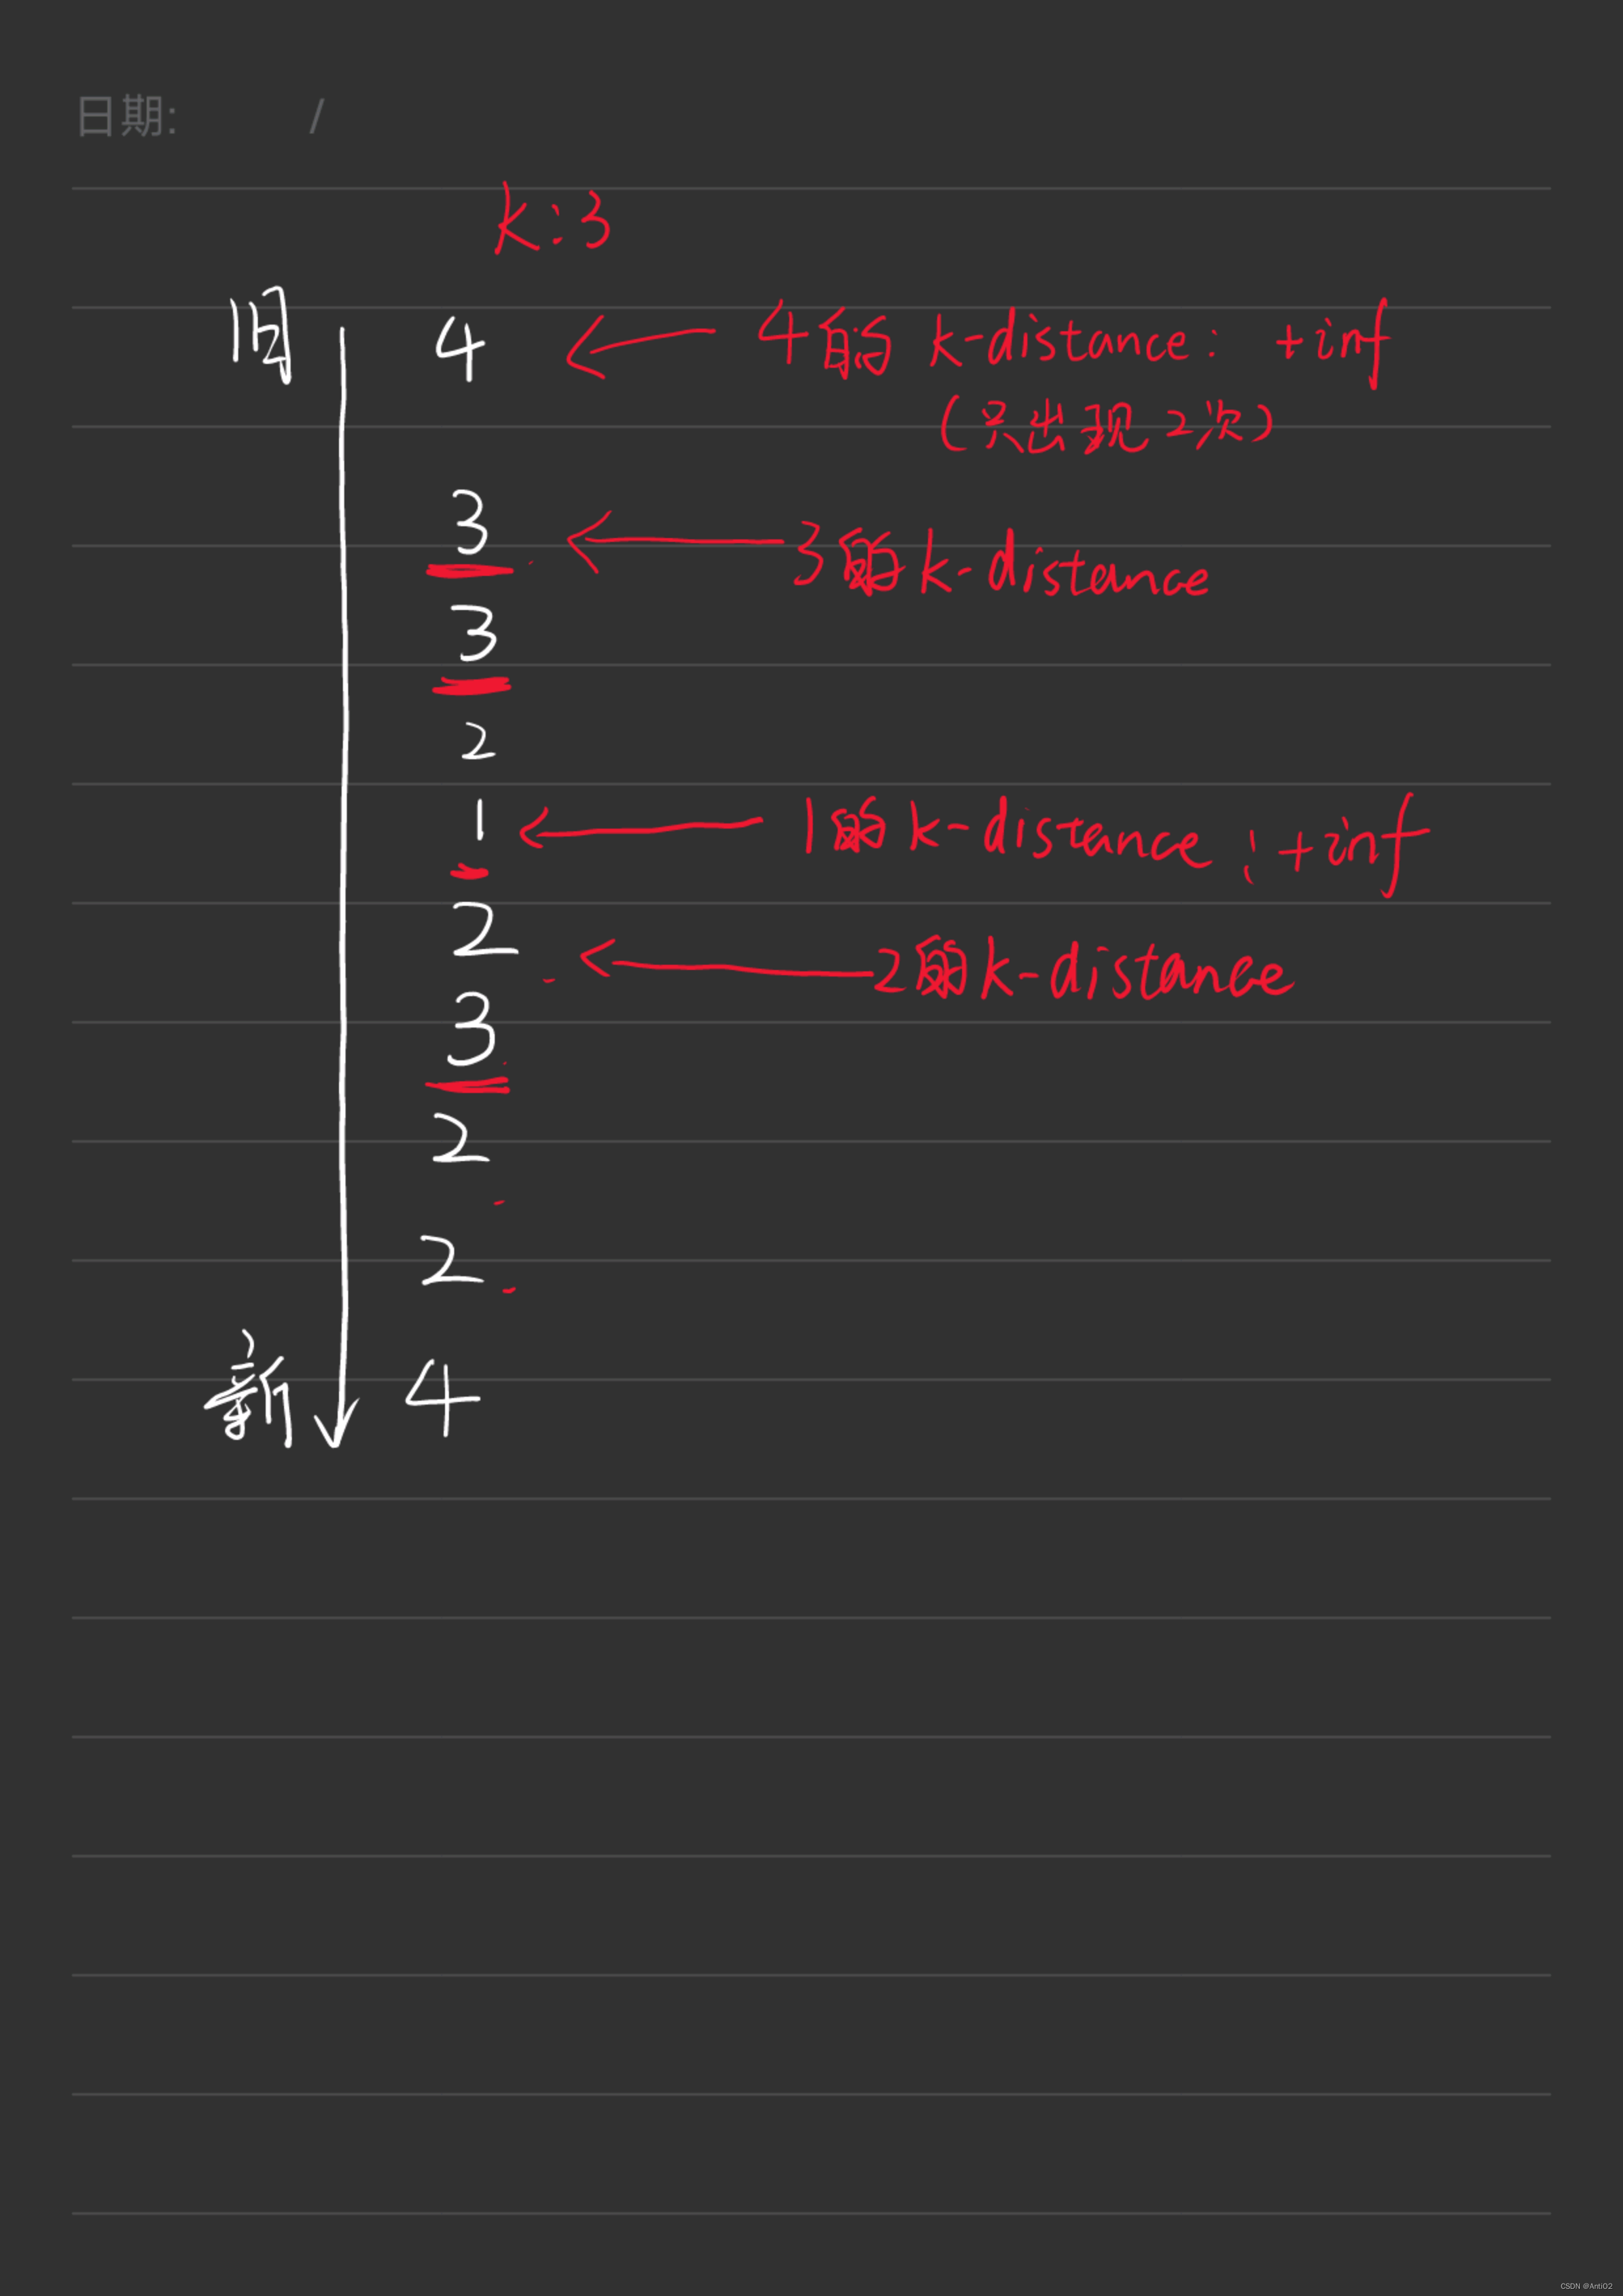 日期: /
k:3
旧 4 4的 k-distance: +inf
(只出现2次)
3 3的k-distance
3
2
1 1的k-distance:+inf
2 2的k-distance
3
2
2
新 4
CSDN @AntiO2